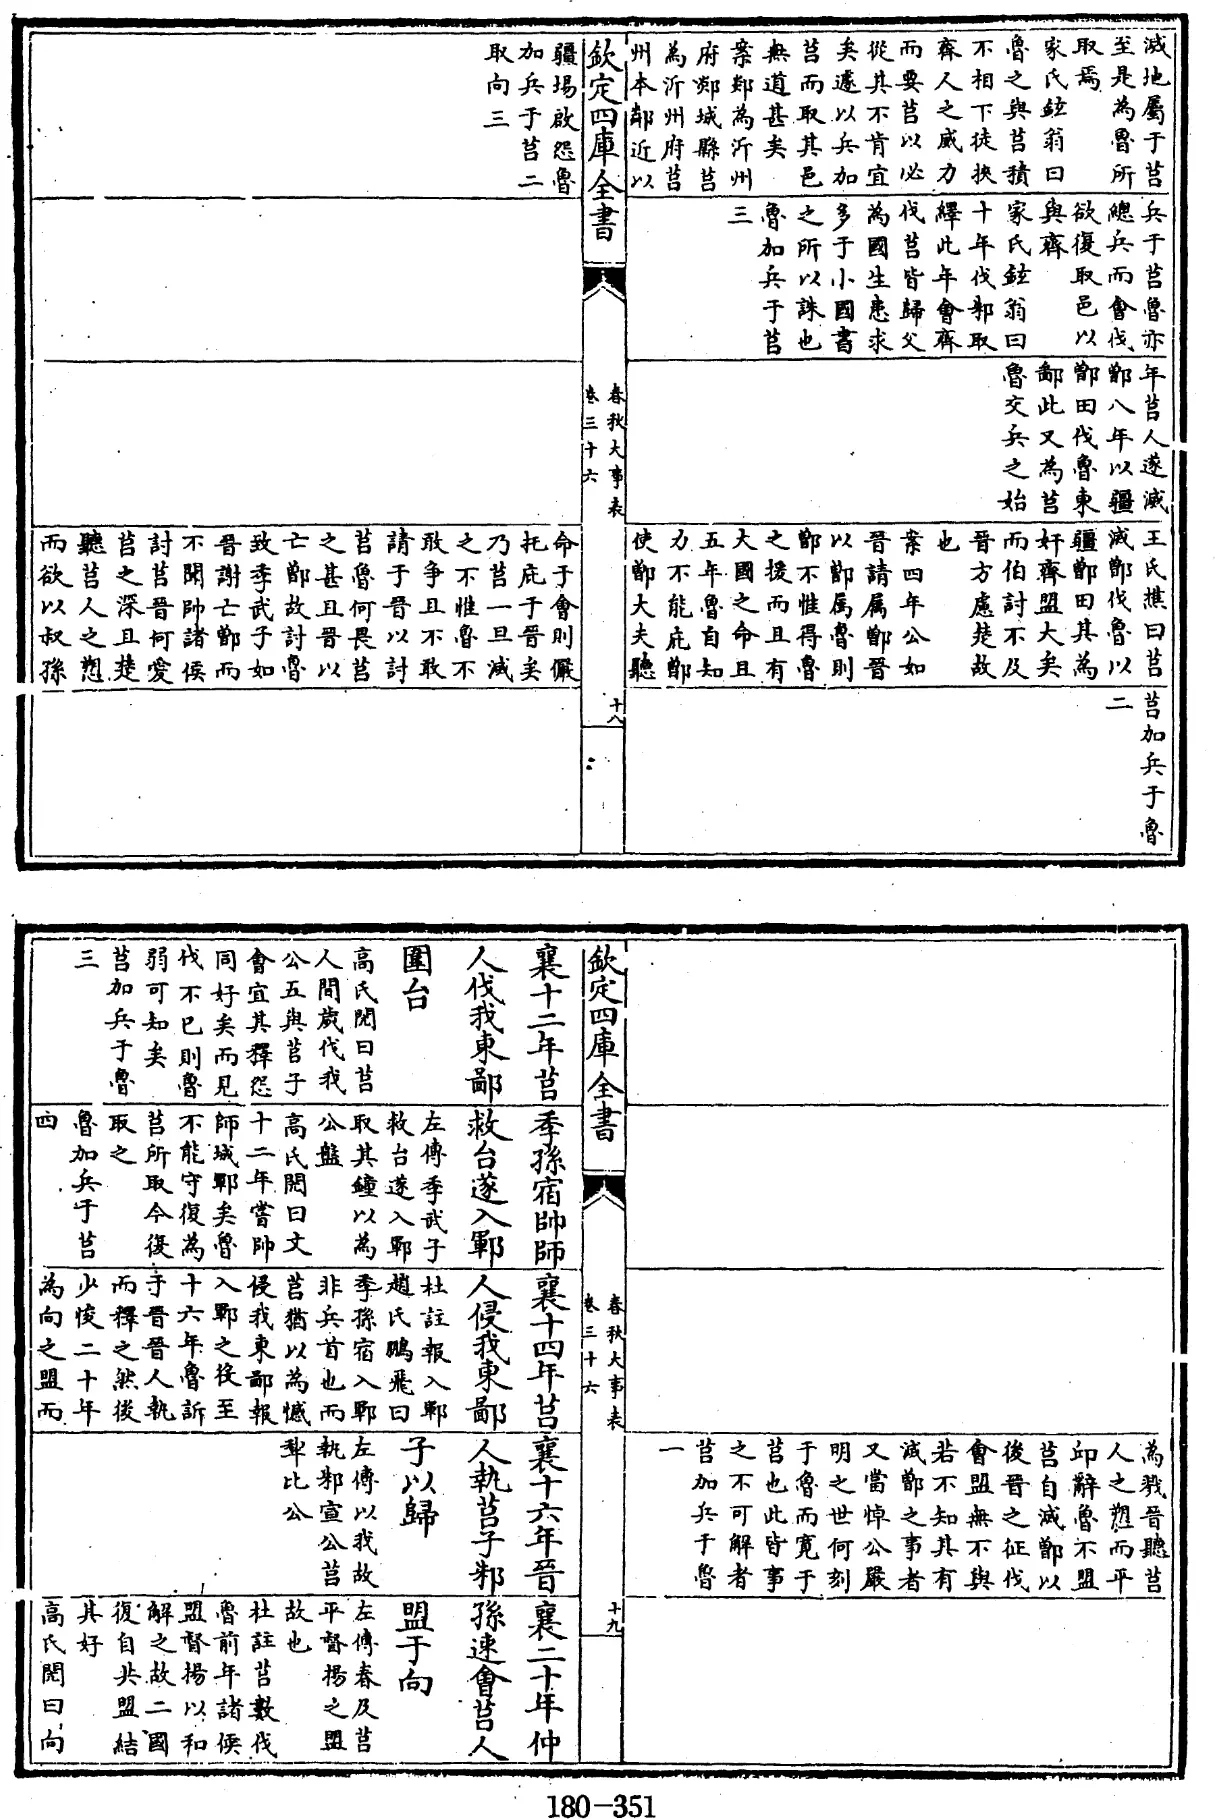 滅地屬于莒
至是為魯所
取焉
家氏鉉翁曰
魯之與莒積
不相下徒挾
齊人之威力
而要莒以必
從其不肯宜
矣遽以兵加
莒而取其邑
無道甚矣
案郯為沂州
府郯城縣莒
為沂州府莒
州本鄰近以
兵于莒魯亦
總兵而會伐
欲復取邑以
與齊
家氏鉉翁曰
十年伐邾取
繹此年會齊
伐莒皆歸父
為國生患求
多于小國書
之所以誅也
魯加兵于莒
三
年莒人遂滅
鄫八年以疆
鄫田伐魯東
鄙此又為莒
魯交兵之始
王氏樵曰莒
滅鄫伐魯以
疆鄫田其為
奸齊盟大矣
而伯討不及
晉方慮楚故
也
案四年公如
晉請属鄫晉
以鄫属魯則
鄫不惟得魯
之援而且有
大國之命且
五年魯自知
力不能庇鄫
使鄫大夫聽
莒加兵于魯
二
欽定四庫全書
春秋大事表
卷三十六
十八
疆場啟怨魯
加兵于莒二
取向三
命于會則儼
托庇于晉矣
乃莒一旦滅
之不惟魯不
敢争且不敢
請于晉以討
莒魯何畏莒
之甚且晉以
亡鄫故討魯
致季武子如
晉謝亡鄫而
不聞帥諸侯
討莒晉何愛
莒之深且楚
聽莒人之愬
而欲以叔孫
為戮晉聽莒
人之愬而平
邱辭魯不盟
莒自滅鄫以
後晉之征伐
會盟無不與
若不知其有
滅鄫之事者
又當悼公嚴
明之世何刻
于魯而寛于
莒也此皆事
之不可解者
莒加兵于魯
一
欽定四庫全書
春秋大事表
卷三十六
十九
襄十二年莒
人伐我東鄙
圍台
高氏閌曰莒
人間歲伐我
公五與莒子
會宜其釋怨
同好矣而見
伐不已則魯
弱可知矣
莒加兵于魯
三
季孫宿帥師
救台遂入鄆
左傳季武子
救台遂入鄆
取其鐘以為
公盤
高氏閌曰文
十二年嘗帥
師城鄆矣魯
不能守復為
莒所取今復
取之
魯加兵于莒
四
襄十四年莒
人侵我東鄙
杜註報入鄆
趙氏鵬飛曰
季孫宿入鄆
非兵首也而
莒猶以為憾
侵我東鄙報
入鄆之役至
十六年魯訴
于晉晉人執
而釋之然後
少悛二十年
為向之盟而
襄十六年晉
人執莒子邾
子以歸
左傳以我故
執邾宣公莒
犂比公
襄二十年仲
孫速會莒人
盟于向
左傳春及莒
平督揚之盟
故也
杜註莒數伐
魯前年諸侯
盟督揚以和
解之故二國
復自共盟結
其好
高氏閌曰向
180-351